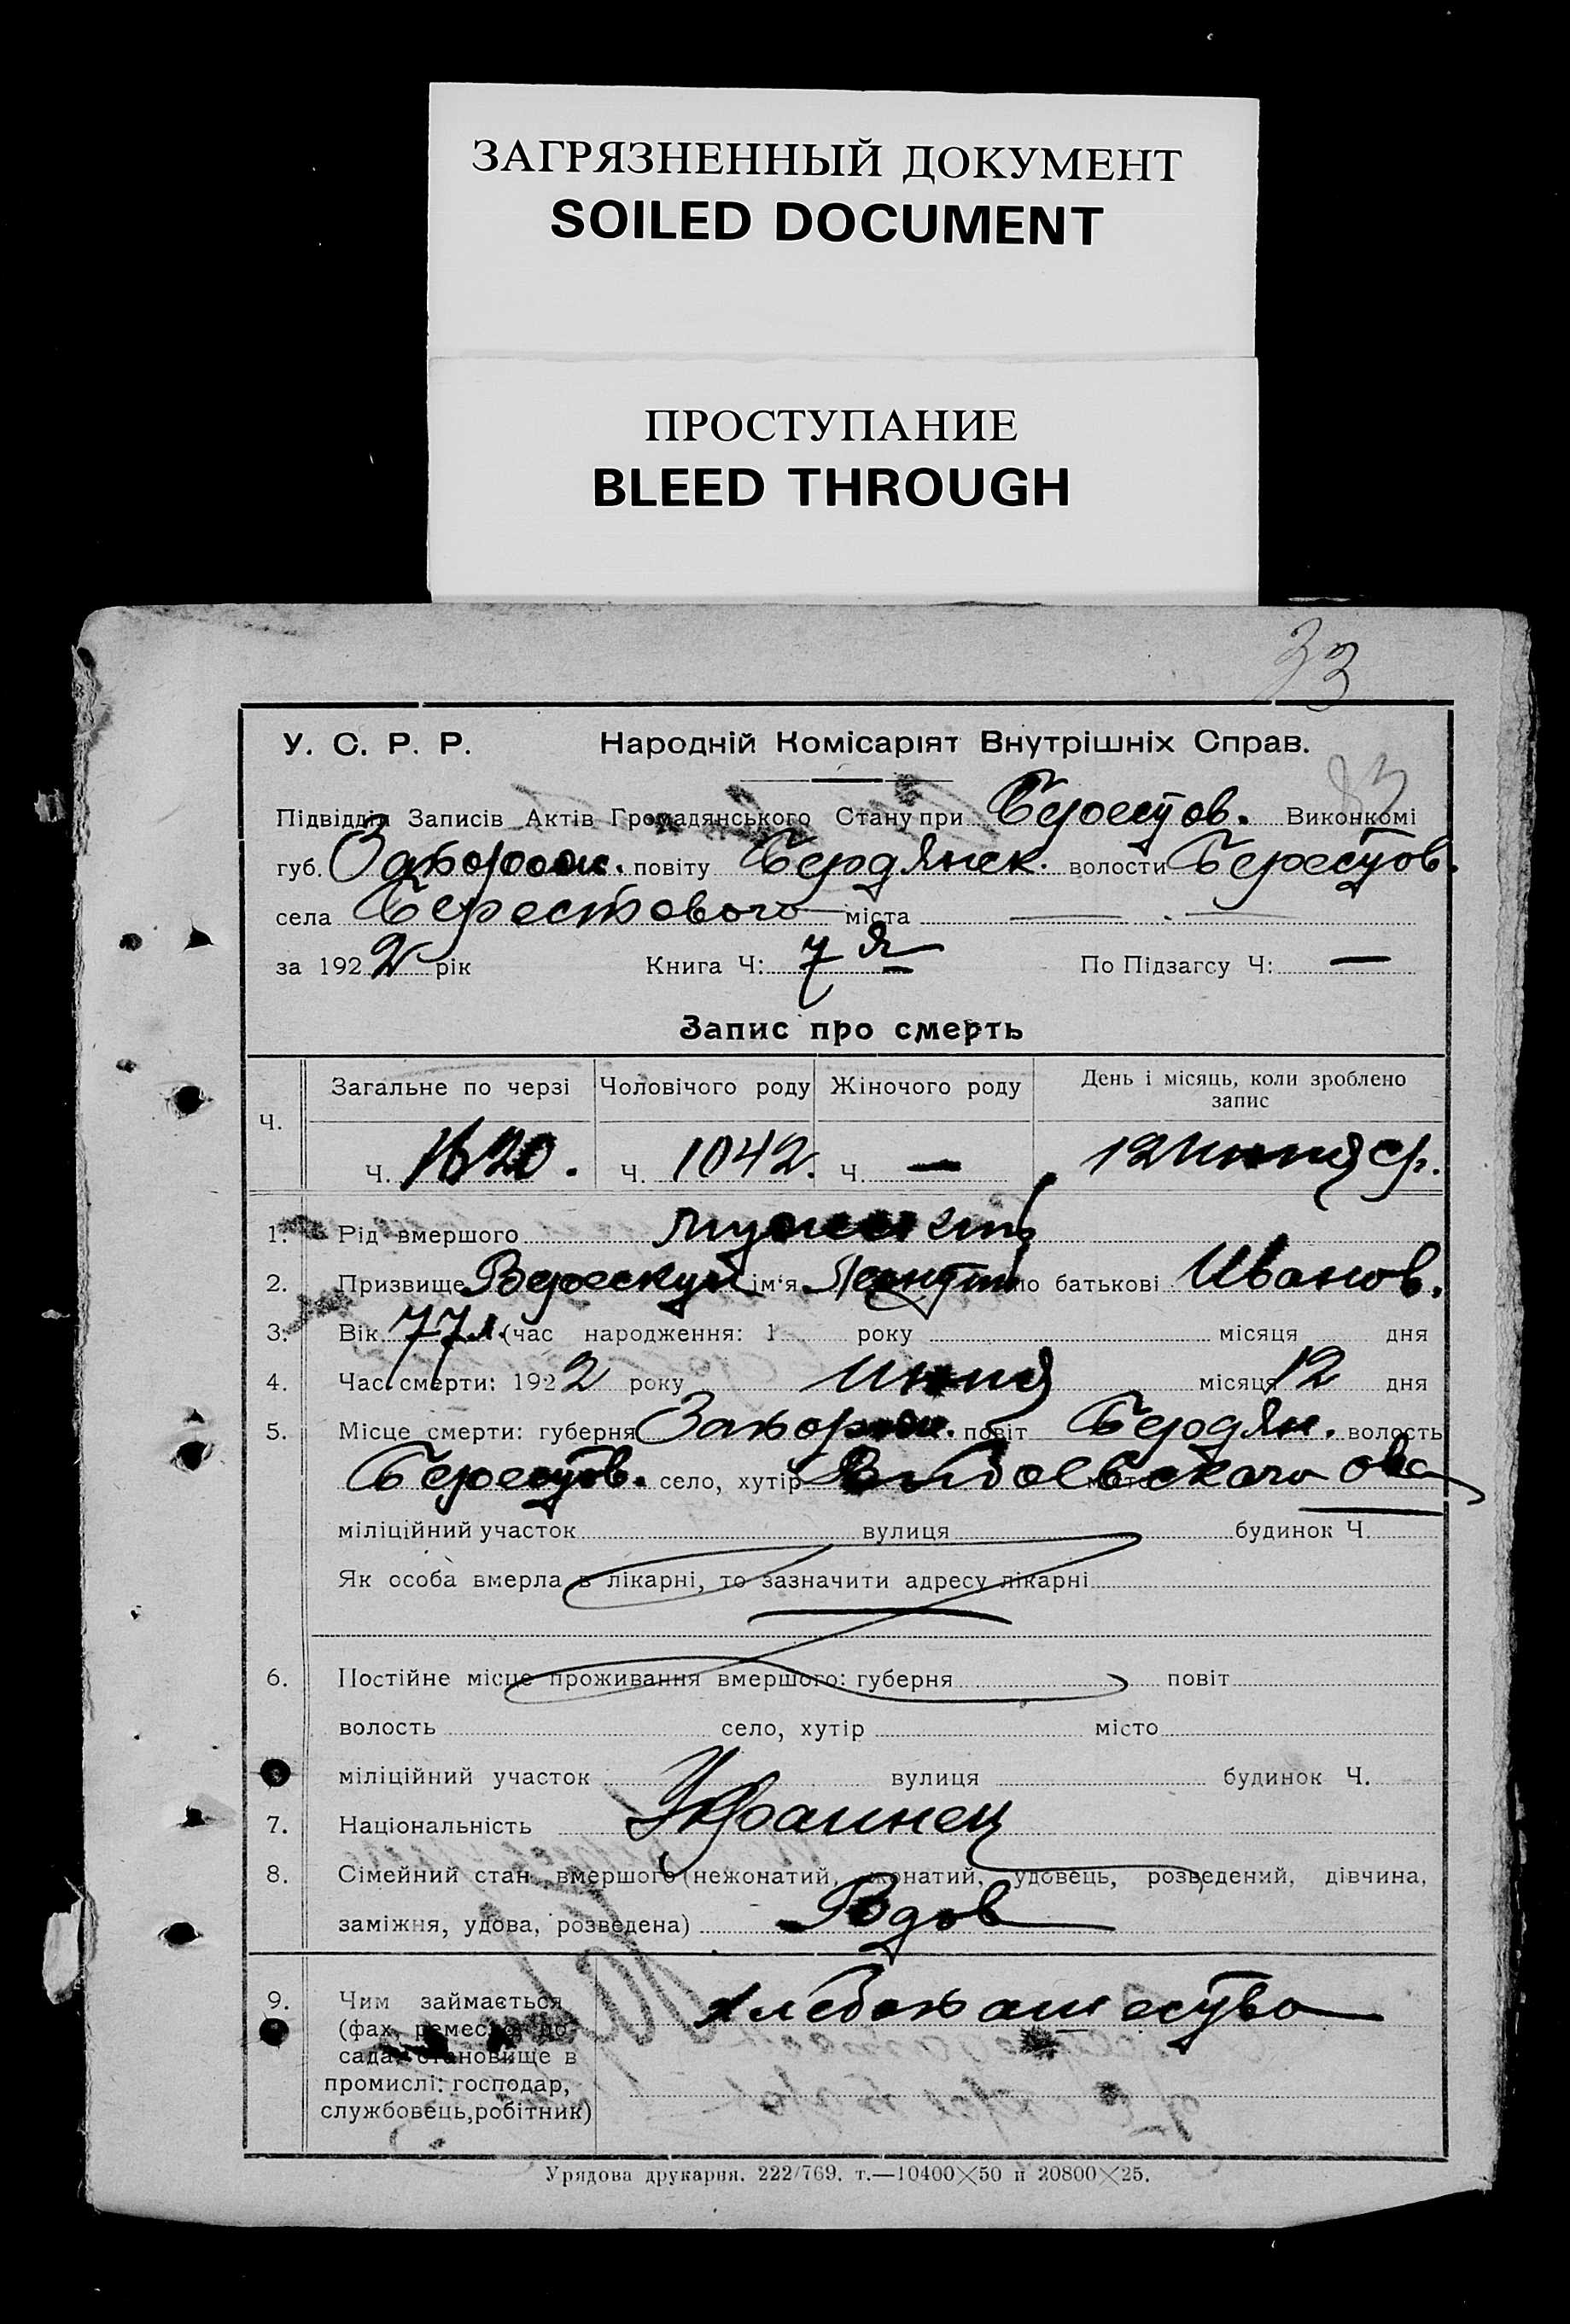 ЗАГРЯЗНЕННЫЙ ДОКУМЕНТ
SOILED DOCUMENT
ПРОСТУПАНИЕ
BLEED THROUGH
33
У. С. Р. Р. Народній Комісаріят Внутрішніх Справ.
Підвідділ Записів Актів Громадянського Стану при Берестов. Виконкомі
губ. Запорож. повіту Бердянск. волости Берестов.
села Берестового міста —
за 1922 рік Книга Ч: 7 я По Підзагсу Ч: —
Запис про смерть
Ч. Загальне по черзі Чоловічого роду Жіночого роду День і місяць, коли зроблено запис
Ч. 1620. Ч. 1042. Ч. — 12 июня ср.
1. Рід вмершого
2. Призвище ім'я по батькові Иванов.
3. Вік 77 л. (час народження: 1 року місяця дня
4. Час смерти: 1922 року июня місяця 12 дня
5. Місце смерти: губерня Запорож. повіт Бердян. волость
Берестов. село, хутір місто
міліційний участок вулиця будинок Ч.
Як особа вмерла в лікарні, то зазначити адресу лікарні
6. Постійне місце проживання вмершого: губерня повіт
волость село, хутір місто
міліційний участок вулиця будинок Ч.
7. Національність Украинец
8. Сімейний стан вмершого (нежонатий, жонатий, удовець, розведений, дівчина,
заміжня, удова, розведена) Вдов
9. Чим займається Хлебопашество
(фах, ремесло, по-
сада і становище в
промислі: господар,
службовець, робітник)
Урядова друкарня. 222/769. т.—10400×50 н 20800×25.